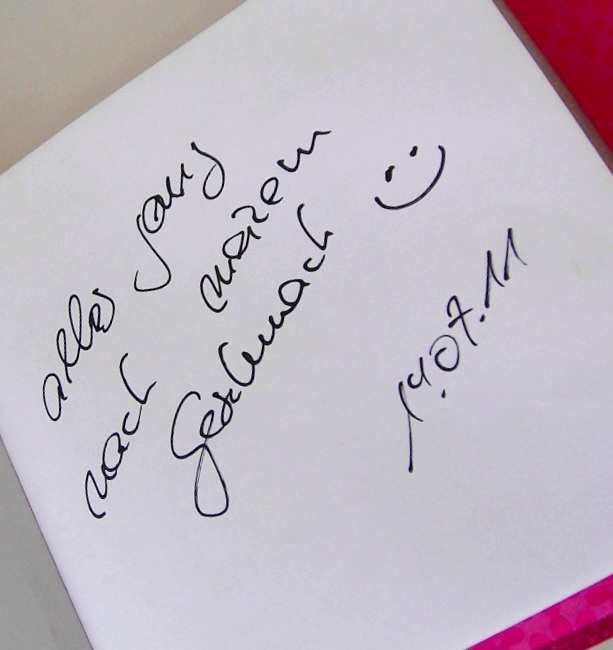 alles ganz
nach meinem
Geschmack :)
19.07.11